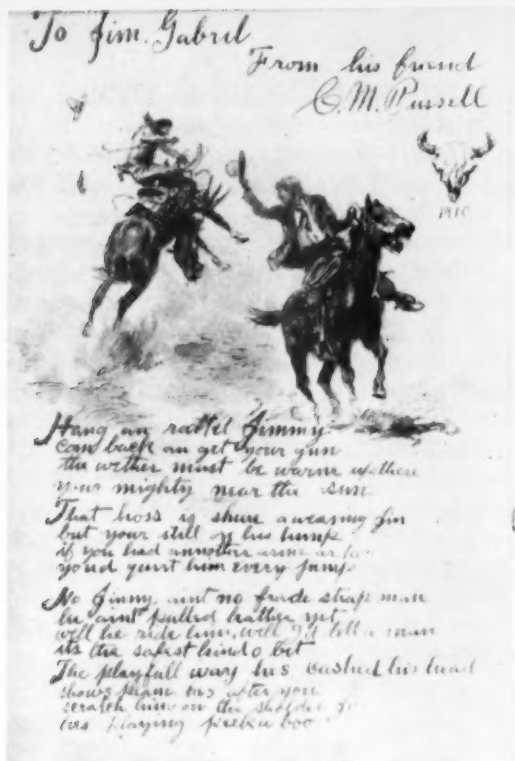 To Jim. Gabril
From his friend
C. M. Russell
1910
Hang an rattel Jimmy
com back an get your gun
the wether must be warm up there
your mighty near the sun
That hoss is shure a wearing fin
but your still on his hump
if you had annother arm or
you'd quirt him every jump
No Jimmy aint no frade strap man
he aint pulled leather yet
will he ride him, well I'd tell a man
its the safest kind o bet
The playfull way hes his head
shows plane after you
scratch him on the
hes playing boo